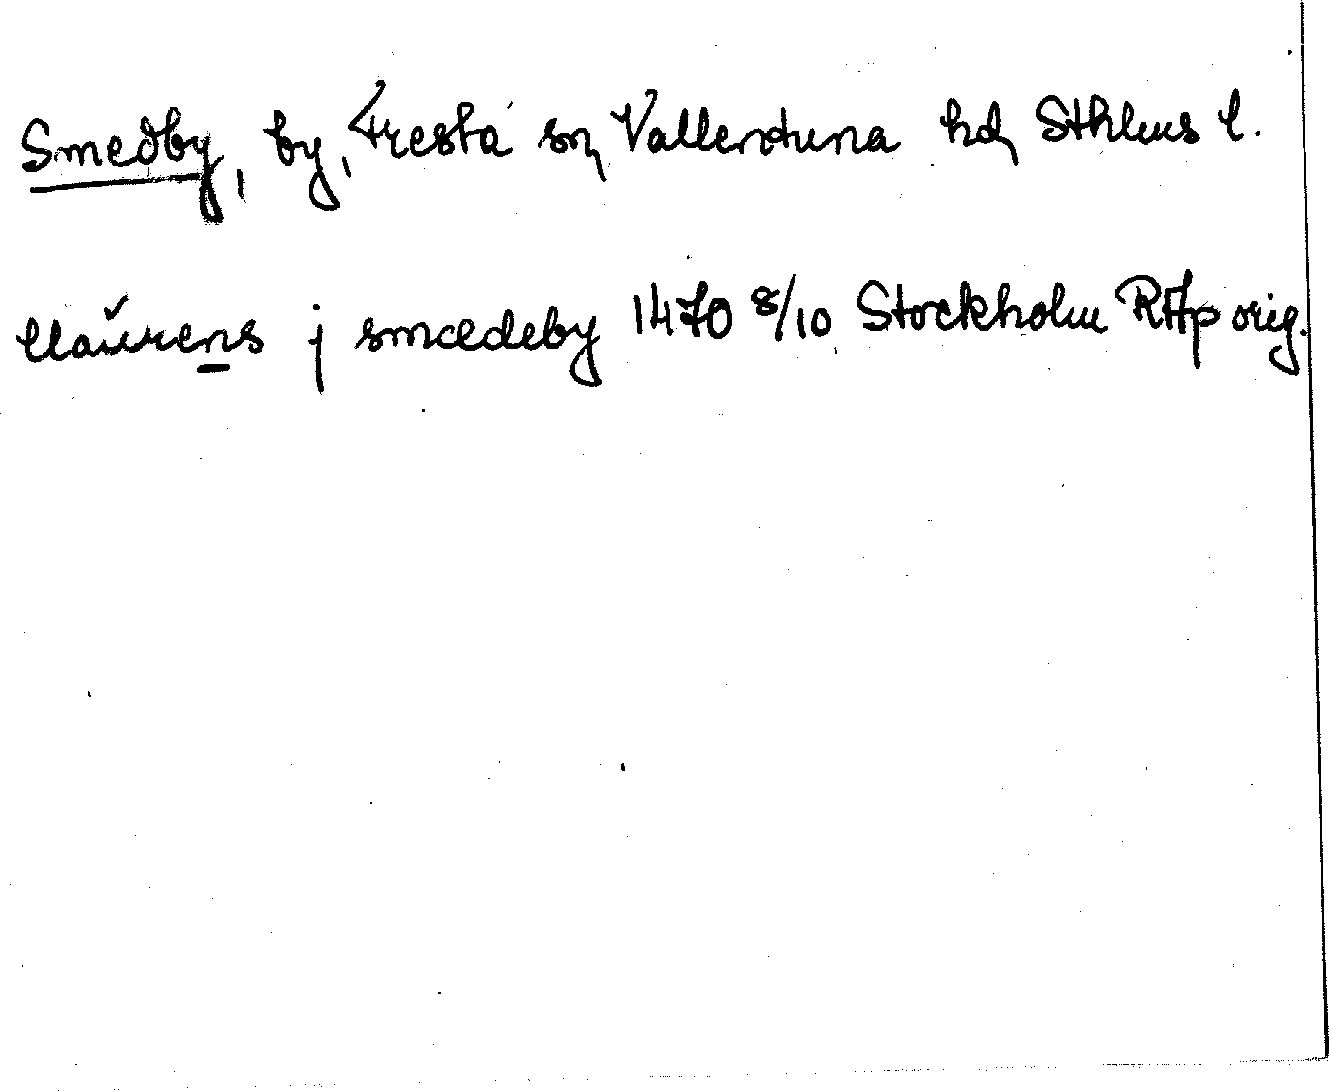 Smedby, by, Fresta sn, Vallentuna hd, Sthlms l.
llaurens j smædeby 1470 8/10 Stockholm RAp orig.